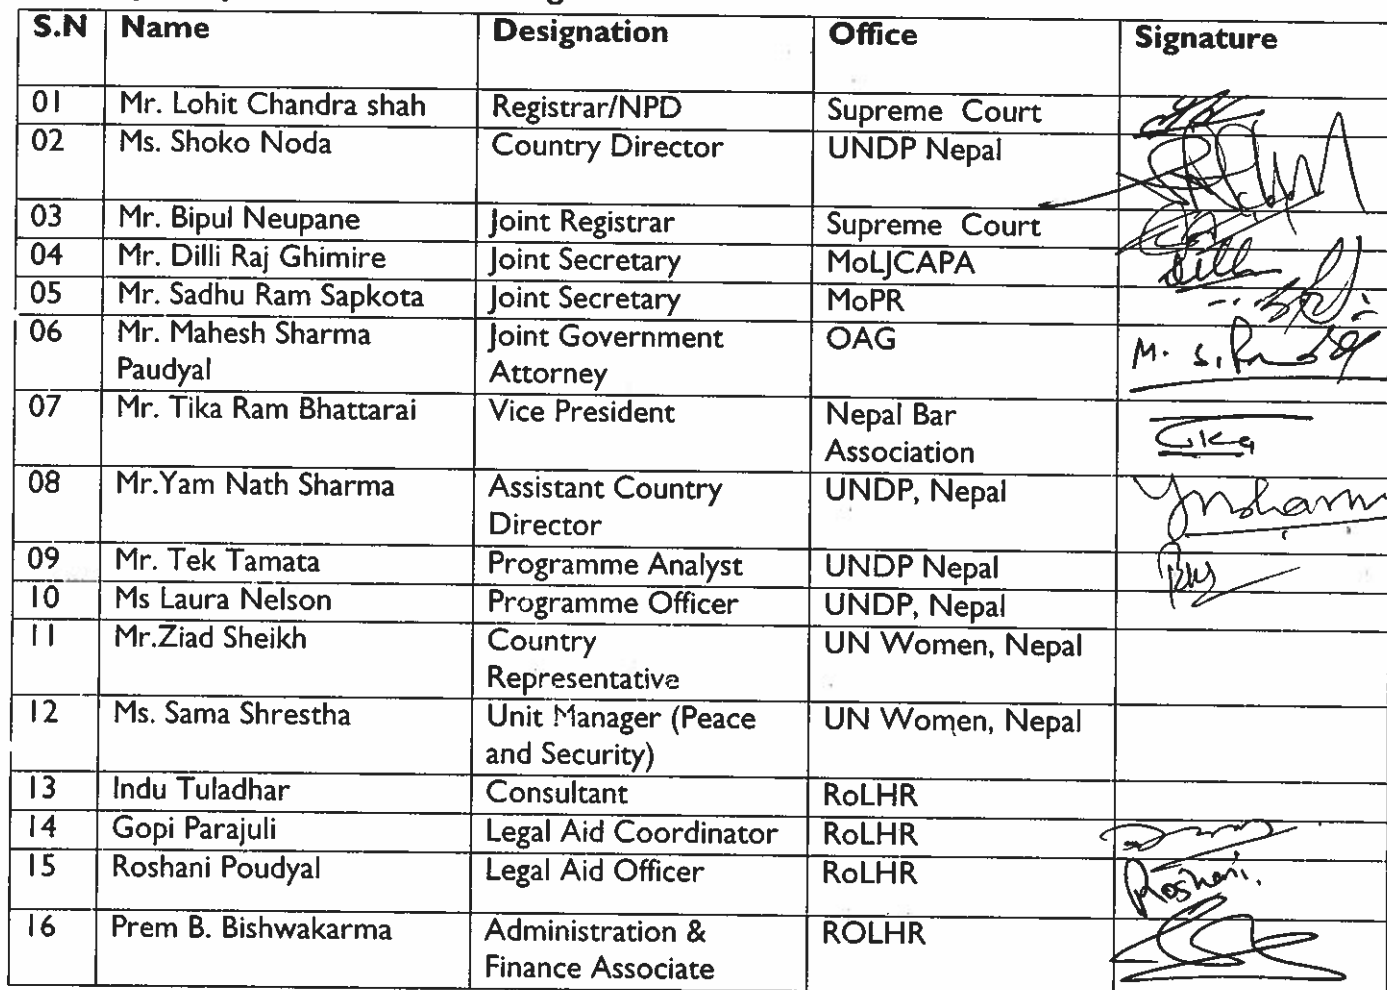 S.N Name Designation Office Signature
01 Mr. Lohit Chandra shah Registrar/NPD Supreme Court
02 Ms. Shoko Noda Country Director UNDP Nepal
03 Mr. Bipul Neupane Joint Registrar Supreme Court
04 Mr. Dilli Raj Ghimire Joint Secretary MoLJCAPA Dilli
05 Mr. Sadhu Ram Sapkota Joint Secretary MoPR
06 Mr. Mahesh Sharma Joint Government OAG M. S.
Paudyal Attorney
07 Mr. Tika Ram Bhattarai Vice President Nepal Bar
Association Tika
08 Mr.Yam Nath Sharma Assistant Country UNDP, Nepal Ynsharm
Director
09 Mr. Tek Tamata Programme Analyst UNDP Nepal
10 Ms Laura Nelson Programme Officer UNDP, Nepal
11 Mr.Ziad Sheikh Country UN Women, Nepal
Representative
12 Ms. Sama Shrestha Unit Manager (Peace UN Women, Nepal
and Security)
13 Indu Tuladhar Consultant RoLHR
14 Gopi Parajuli Legal Aid Coordinator RoLHR
15 Roshani Poudyal Legal Aid Officer RoLHR Roshani.
16 Prem B. Bishwakarma Administration & ROLHR
Finance Associate